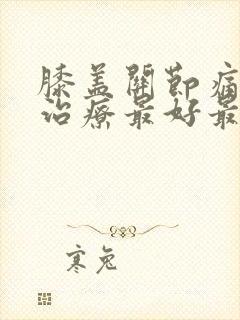 膝盖關節痛
治療最好最
寒兔